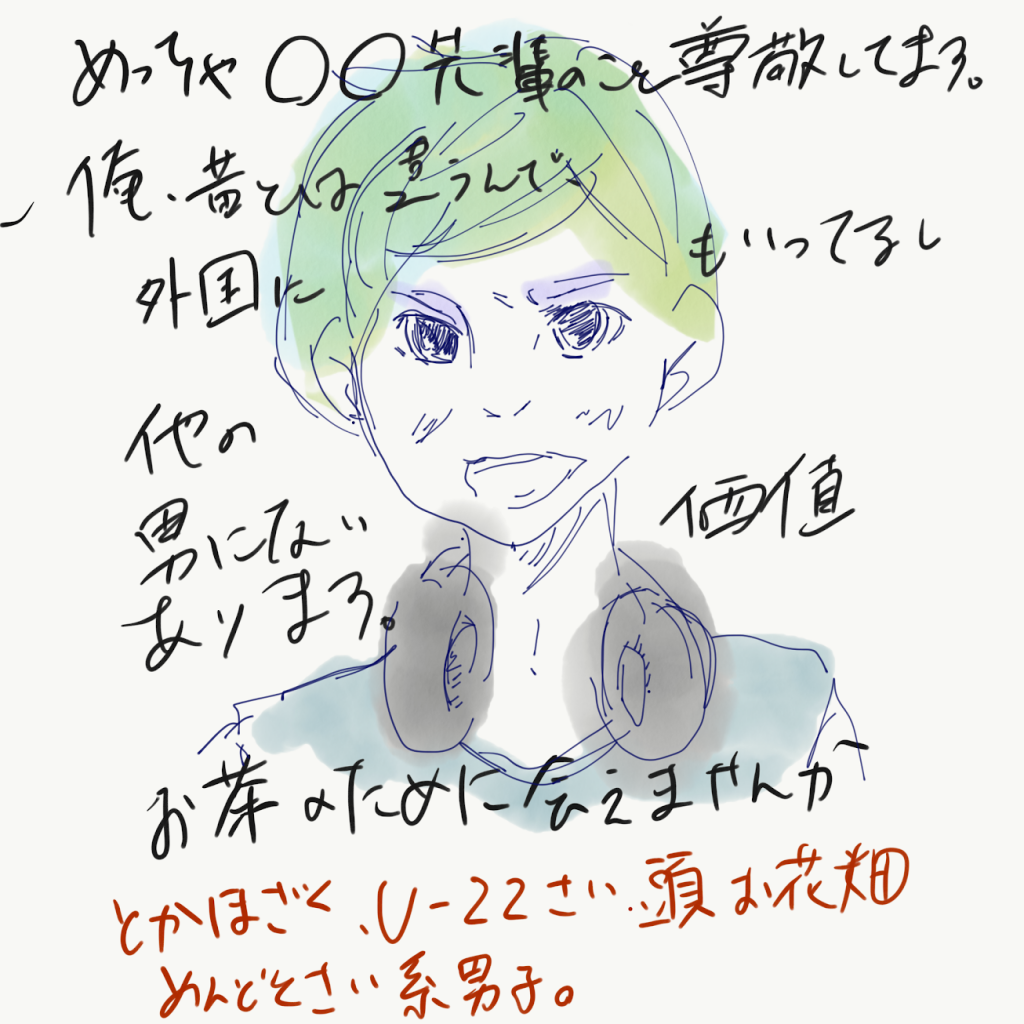 めっちゃ〇〇先輩のこと尊敬してまろ。
俺、昔とは違うんで、
外国に もいってるし
他の
男にない 価値
ありまろ。
お茶のために会えませんか
とかほざく、U-22さい、頭お花畑
めんどくさい系男子。